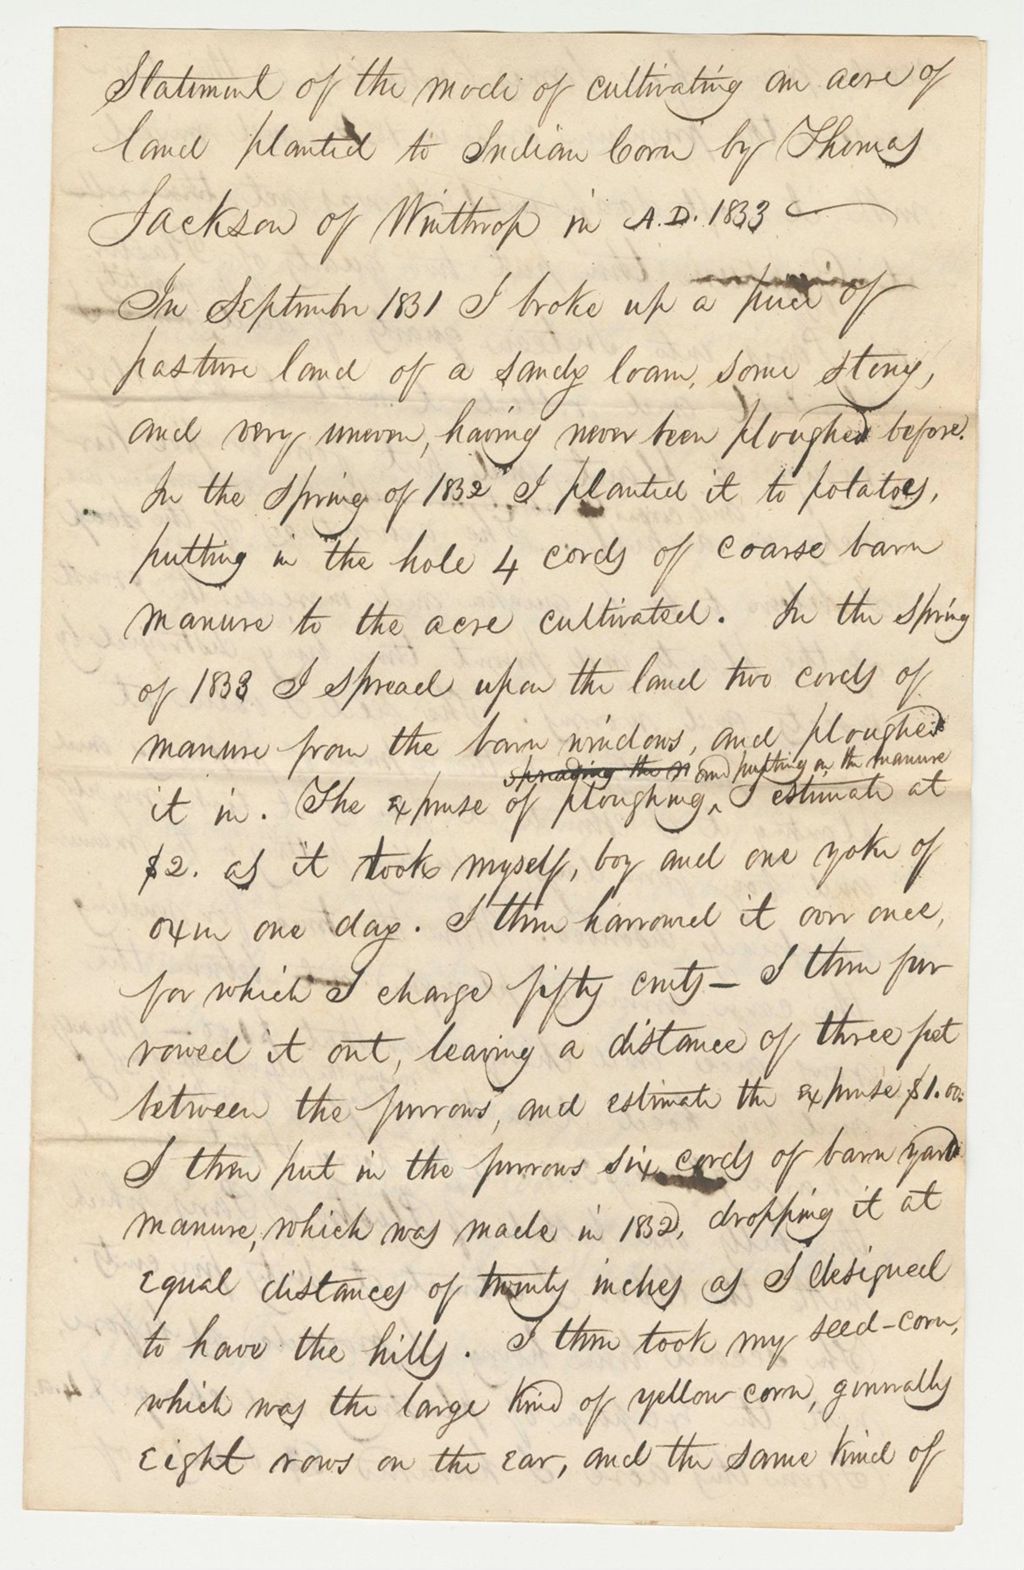 Statement of the mode of cultivating an acre of
land planted to Indian Corn by Thomas
Jackson of Winthrop in A.D. 1833
In September 1831 I broke up a piece of
pasture land of a sandy loam, some stony,
and very uneven, having never been ploughed before.
In the spring of 1832 I planted it to potatoes,
putting in the hole 4 cords of coarse barn
manure to the acre cultivated. In the spring
of 1833 I spread upon the land two cords of
manure from the barn windows, and ploughed
spreading the m and putting on the manure
it in. The expense of ploughing, ‸ I estimate at
$2. as it took myself, boy and one yoke of
oxen one day. I then harrowed it over once,
for which I charge fifty cents – I then fur
rowed it out, leaving a distance of three feet
between the furrows, and estimate the expense $1.00.
I then put in the furrows six cords of barn yard
manure, which was made in 1832, dropping it at
equal distances of twenty inches as I designed
to have the hills. I then took my seed-corn,
which was the large kind of yellow corn, generally
eight rows on the ear, and the same kind of